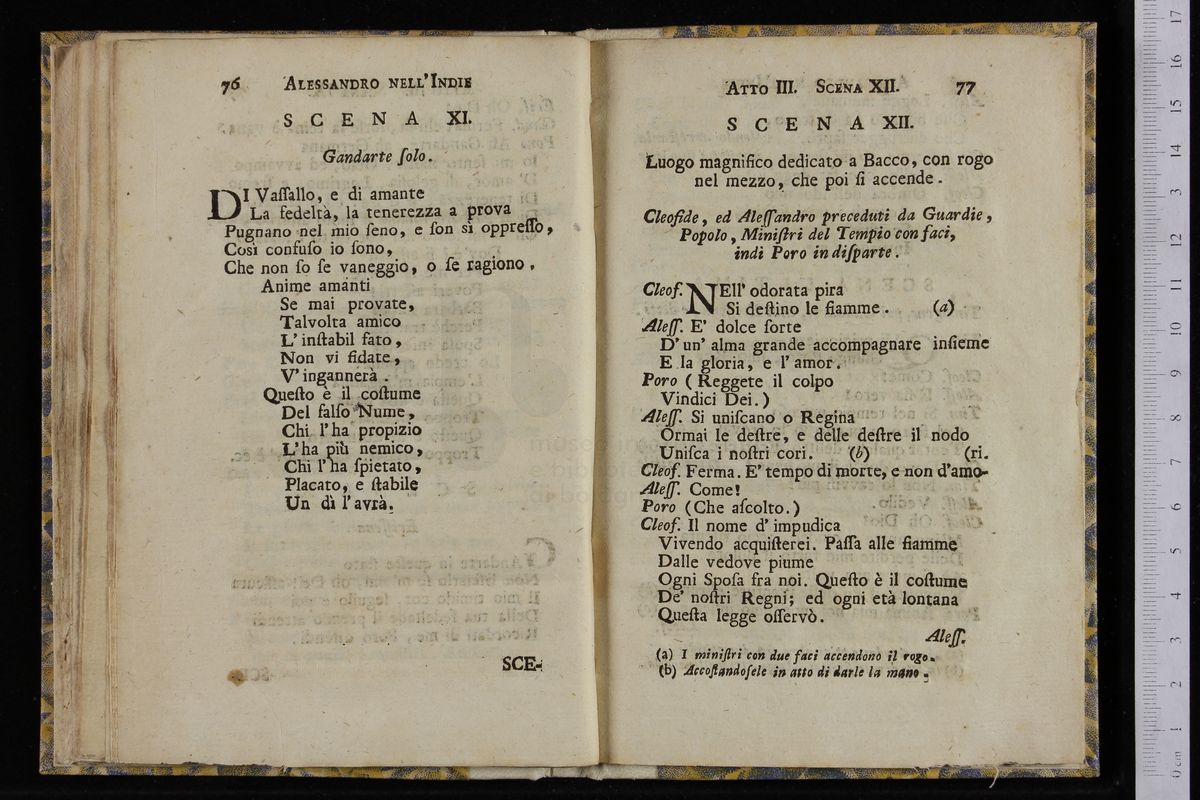 76 ALESSANDRO NELL'INDIE
SCENA XI.
Gandarte ſolo.
DI Vaſſallo, e di amante
La fedeltà, la tenerezza a prova
Pugnano nel mio ſeno, e ſon sì oppreſſo,
Così confuſo io ſono,
Che non ſo ſe vaneggio, o ſe ragiono.
Anime amanti
Se mai provate,
Talvolta amico
L'inſtabil fato,
Non vi fidate,
V'ingannerà.
Queſto è il coſtume
Del falſo Nume,
Chi l'ha propizio
L'ha più nemico,
Chi l'ha ſpietato,
Placato, e ſtabile
Un dì l'avrà.
SCE-
ATTO III. SCENA XII. 77
SCENA XII.
Luogo magnifico dedicato a Bacco, con rogo
nel mezzo, che poi ſi accende.
Cleofide, ed Aleſſandro preceduti da Guardie,
Popolo, Miniſtri del Tempio con faci,
indi Poro in diſparte.
Cleof. NEll' odorata pira
Si deſtino le fiamme. (a)
Aleſſ. E' dolce ſorte
D'un' alma grande accompagnare inſieme
E la gloria, e l'amor.
Poro (Reggete il colpo
Vindici Dei.)
Aleſſ. Si uniſcano o Regina
Ormai le deſtre, e delle deſtre il nodo
Uniſca i noſtri cori. (b) (ri.
Cleof. Ferma. E' tempo di morte, e non d'amo-
Aleſſ. Come!
Poro (Che aſcolto.)
Cleof. Il nome d'impudica
Vivendo acquiſterei. Paſſa alle fiamme
Dalle vedove piume
Ogni Spoſa fra noi. Queſto è il coſtume
De' noſtri Regni; ed ogni età lontana
Queſta legge oſſervò.
Aleſſ.
(a) I miniſtri con due faci accendono il rogo.
(b) Accoſtandoſele in atto di darle la mano.